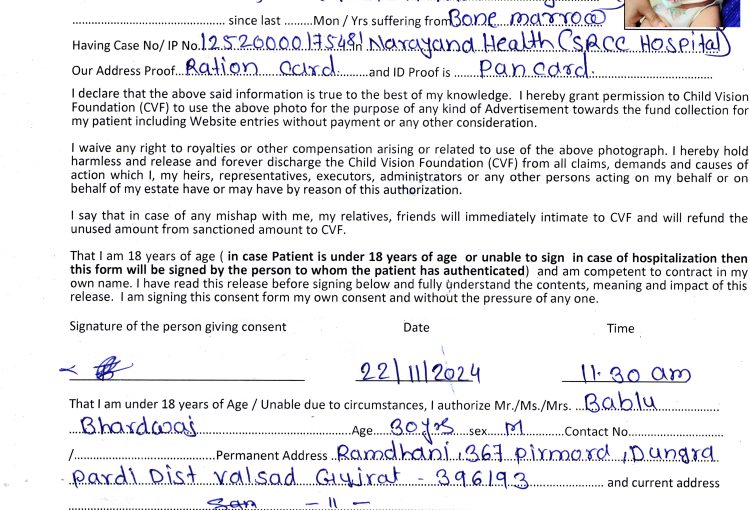 since last ........Mon / Yrs suffering from Bone marrow
Having Case No/ IP No. 12520000175481 Narayana Health (SRCC Hospital)
Our Address Proof...Ration card......and ID Proof is ......Pan card.
I declare that the above said information is true to the best of my knowledge. I hereby grant permission to Child Vision
Foundation (CVF) to use the above photo for the purpose of any kind of Advertisement towards the fund collection for
my patient including Website entries without payment or any other consideration.
I waive any right to royalties or other compensation arising or related to use of the above photograph. I hereby hold
harmless and release and forever discharge the Child Vision Foundation (CVF) from all claims, demands and causes of
action which I, my heirs, representatives, executors, administrators or any other persons acting on my behalf or on
behalf of my estate have or may have by reason of this authorization.
I say that in case of any mishap with me, my relatives, friends will immediately intimate to CVF and will refund the
unused amount from sanctioned amount to CVF.
That I am 18 years of age ( in case Patient is under 18 years of age or unable to sign in case of hospitalization then
this form will be signed by the person to whom the patient has authenticated) and am competent to contract in my
own name. I have read this release before signing below and fully understand the contents, meaning and impact of this
release. I am signing this consent form my own consent and without the pressure of any one.
Signature of the person giving consent Date Time
22/11/2024 11.30 am
That I am under 18 years of Age / Unable due to circumstances, I authorize Mr./Ms./Mrs. ..Bablu
Bhardwaj Age...30yrs...sex...M...Contact No
/ Permanent Address ..Ramdhani, 367 pirmord, Dungra
pardi Dist valsad Gujrat - 396193 and current address
San - 11 -